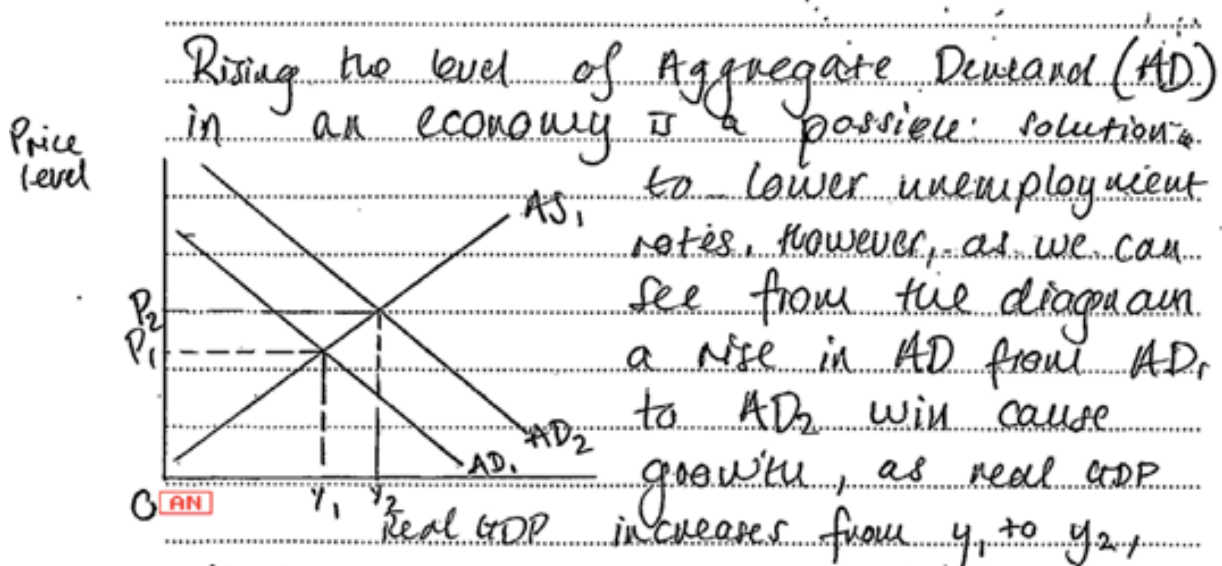 Rising the level of Aggregate Demand (AD)
in an economy is a possible solution
Price
level
to lower unemployment
rates. However, as we can
see from the diagram
a rise in AD from AD₁
to AD₂ will cause
growth, as real GDP
increases from y₁ to y₂,
AS₁
P₂
P₁
AD₂
AD₁
O
AN
Y₁
Y₂
Real GDP